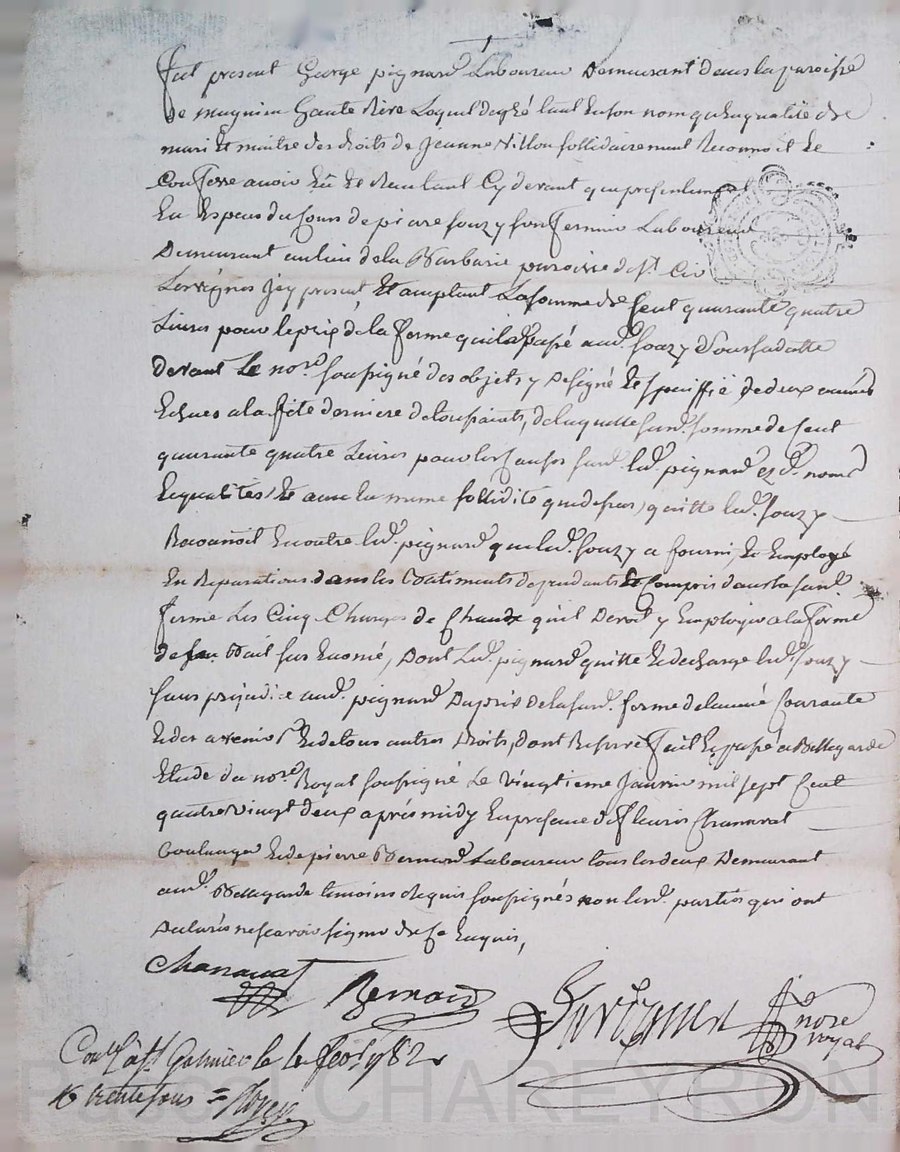 fut present George pignard Laboureur Demeurant dans la paroisse
de magnieu haute Rive Loquel de gré tant En son nom qu'En qualité de
mari Et maitre des droits de Jeanne sollidairement Reconnoit Et
Confesse avoir Eû Et Recu tant Cy devant que presentement
En Especes du Cours de pierre souzy son fermier Laboureur
Demeurant au lieu de la Barbarie paroisse de St. Cir
Les vignes Jcy present, Et acceptant La somme de Cent quarante quatre
Livres pour le prix de la ferme qu'il a passé aud. souzy
devant Le nore. soussigné des objets y Designé Et speciffié de deux années
Echues a la fête derniere de toussaints, de laquelle susd. somme de Cent
quarante quatre Livres pour les Causes susd. led. pignard ez d. noms
Et qualités Et avec la meme sollidité que dessus, quitte led. souzy
Reconnoit En outre led. pignard que led. souzy a fourni, Et Employé
En Reparations dans les Batiments dependants Et Compris dans la susd.
ferme Les Cinq Charges de Chaux qu'il Devoit y Employer a la forme
de son Bail sus Enoncé, Dont led. pignard quitte Et decharge led. souzy
sans prejudice aud. pignard Du prix de la susd. ferme de l'année Courante
Et des avenir Et de tous autres Droits, dont Reserve fait Et passé a Bellegarde
Etude du nore. Royal soussigné Le vingtieme Janvier mil sept Cent
quatre vingt deux après midy En presence de fleuris Chanavat
boulanger Et de pierre Bernard Laboureur tous les deux Demeurant
aud. Bellegarde temoins Requis soussignés non lesd. parties qui ont
Declarés ne scavoir signer de Ce Enquis,
Chanavat
Bernard
nore
royal
Conlé à St. Galmier le 1 fevr 1782
R trente sous =
CHAREYRON